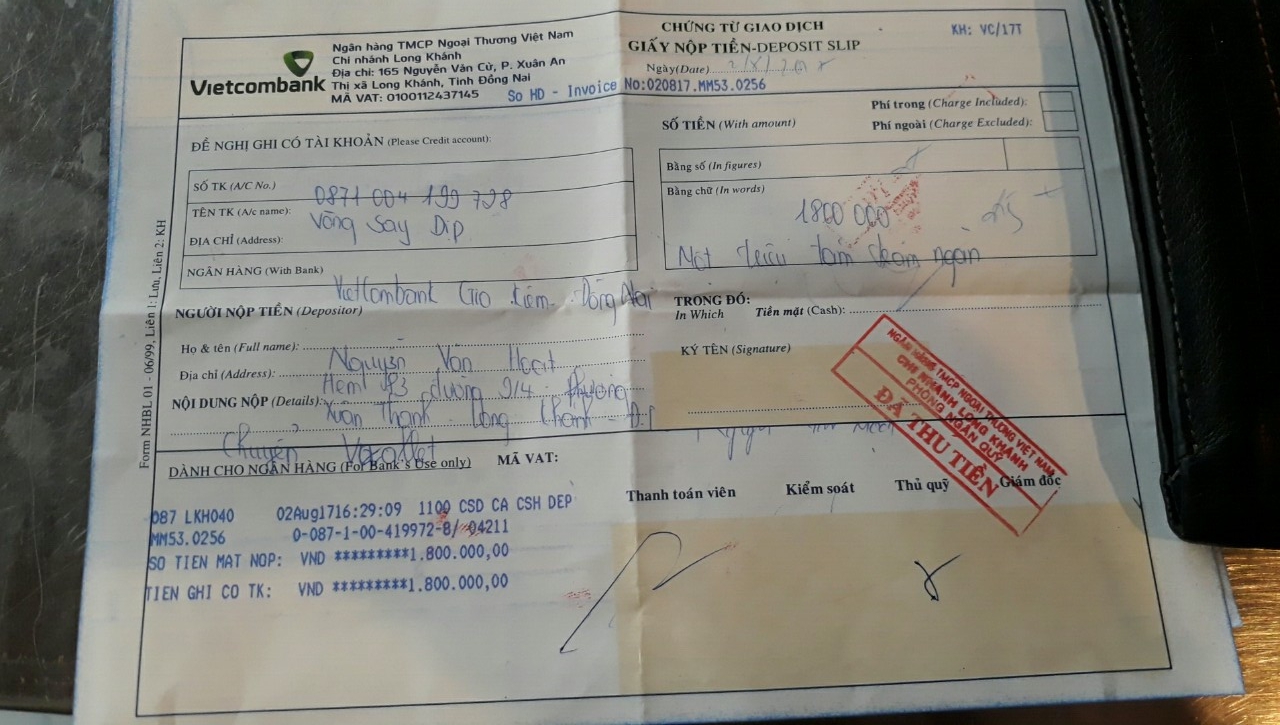 Vietcombank
Ngân hàng TMCP Ngoại Thương Việt Nam
Chi nhánh Long Khánh
Địa chỉ: 165 Nguyễn Văn Cừ, P. Xuân An
Thị xã Long Khánh, Tỉnh Đồng Nai
MÃ VAT: 0100112437145
CHỨNG TỪ GIAO DỊCH
GIẤY NỘP TIỀN-DEPOSIT SLIP
KH: VC/17T
Ngày(Date)
So HD - Invoice No:020817.MM53.0256
ĐỀ NGHỊ GHI CÓ TÀI KHOẢN (Please Credit account):
SỐ TK (A/C No.) 0871 004 199 728
TÊN TK (A/c name): Vòng Say Dip
ĐỊA CHỈ (Address):
NGÂN HÀNG (With Bank)
Vietcombank Gia Kiệm Đồng Nai
SỐ TIỀN (With amount)
Phí trong (Charge Included):
Phí ngoài (Charge Excluded):
Bằng số (In figures)
Bằng chữ (In words)
1800 000
Một triệu tám trăm ngàn
NGƯỜI NỘP TIỀN (Depositor)
Họ & tên (Full name): Nguyễn Văn
Địa chỉ (Address): đường 9/4 phường
NỘI DUNG NỘP (Details): Xuân Thạnh Long Khánh
Chuyển
TRONG ĐÓ:
In Which
Tiền mặt (Cash):
KÝ TÊN (Signature)
NGÂN HÀNG TMCP NGOẠI THƯƠNG VIỆT NAM
CHI NHÁNH LONG KHÁNH
PHÒNG NGÂN QUỸ
ĐÃ THU TIỀN
DÀNH CHO NGÂN HÀNG (For Bank's Use only)
MÃ VAT:
Thanh toán viên
Kiểm soát
Thủ quỹ
Giám đốc
087 LKH040 02Aug1716:29:09 1100 CSD CA CSH DEP
MM53.0256 0-087-1-00-419972-8/ 04211
SO TIEN MAT NOP: VND *********1.800.000,00
TIEN GHI CO TK: VND *********1.800.000,00
Form NHBL 01 - 06/99, Liên 1: Lưu, Liên 2: KH